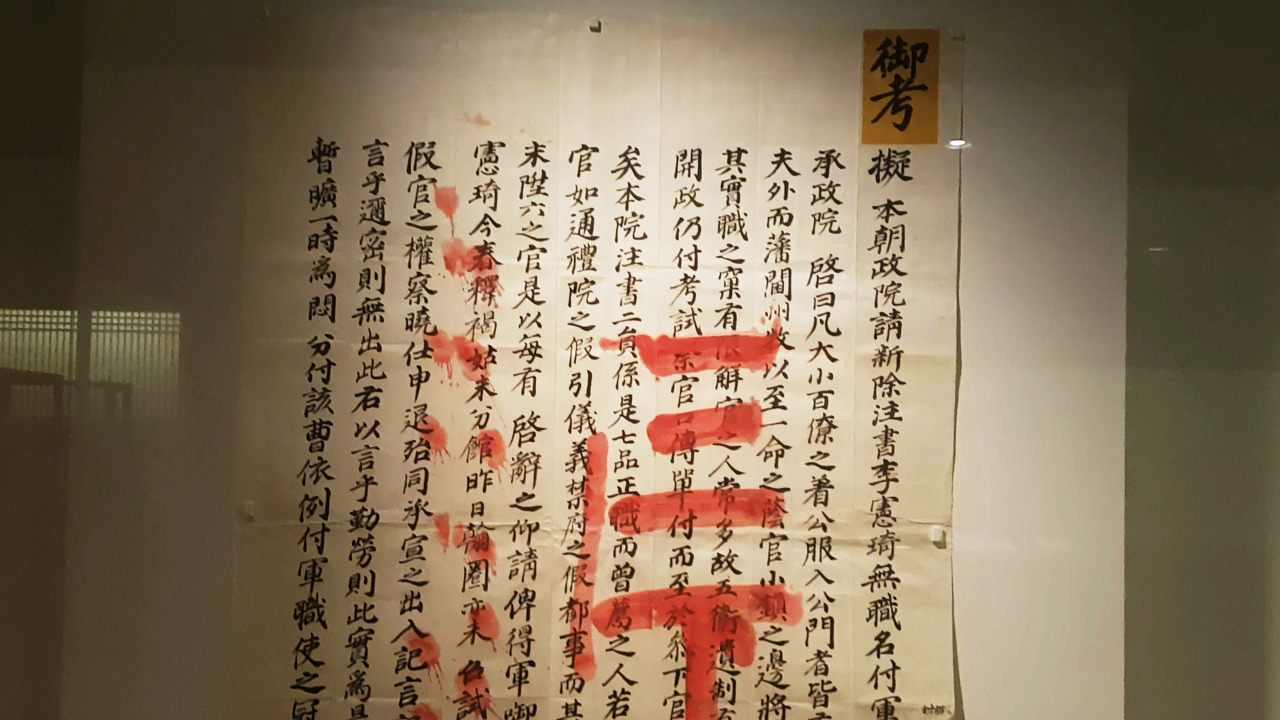 御考
擬 本朝政院請新除注書李憲琦無職名付軍
承政院 啓曰凡大小百僚之着公服入公門者皆
夫外而藩閫州收以至一命之蔭官小鎭之邊將
其實職之窠有 解官之人常多故五衛遺制
開政仍付考試 官口傳單付而至於 下官
矣本院注書二員係是七品正職而曾薦之人若
官如通禮院之假引儀義禁府之假都事而其
末陞六之官是以每有 啓辭之仰請俾得軍御
憲琦今春釋褐姑未分館昨日翰圈亦未 台試
假官之權察曉仕申退殆同承宣之出入記言
言乎邇密則無出此右以言乎勤勞則此實爲
暫曠一時爲悶 分付該曹依例付軍職使之冠